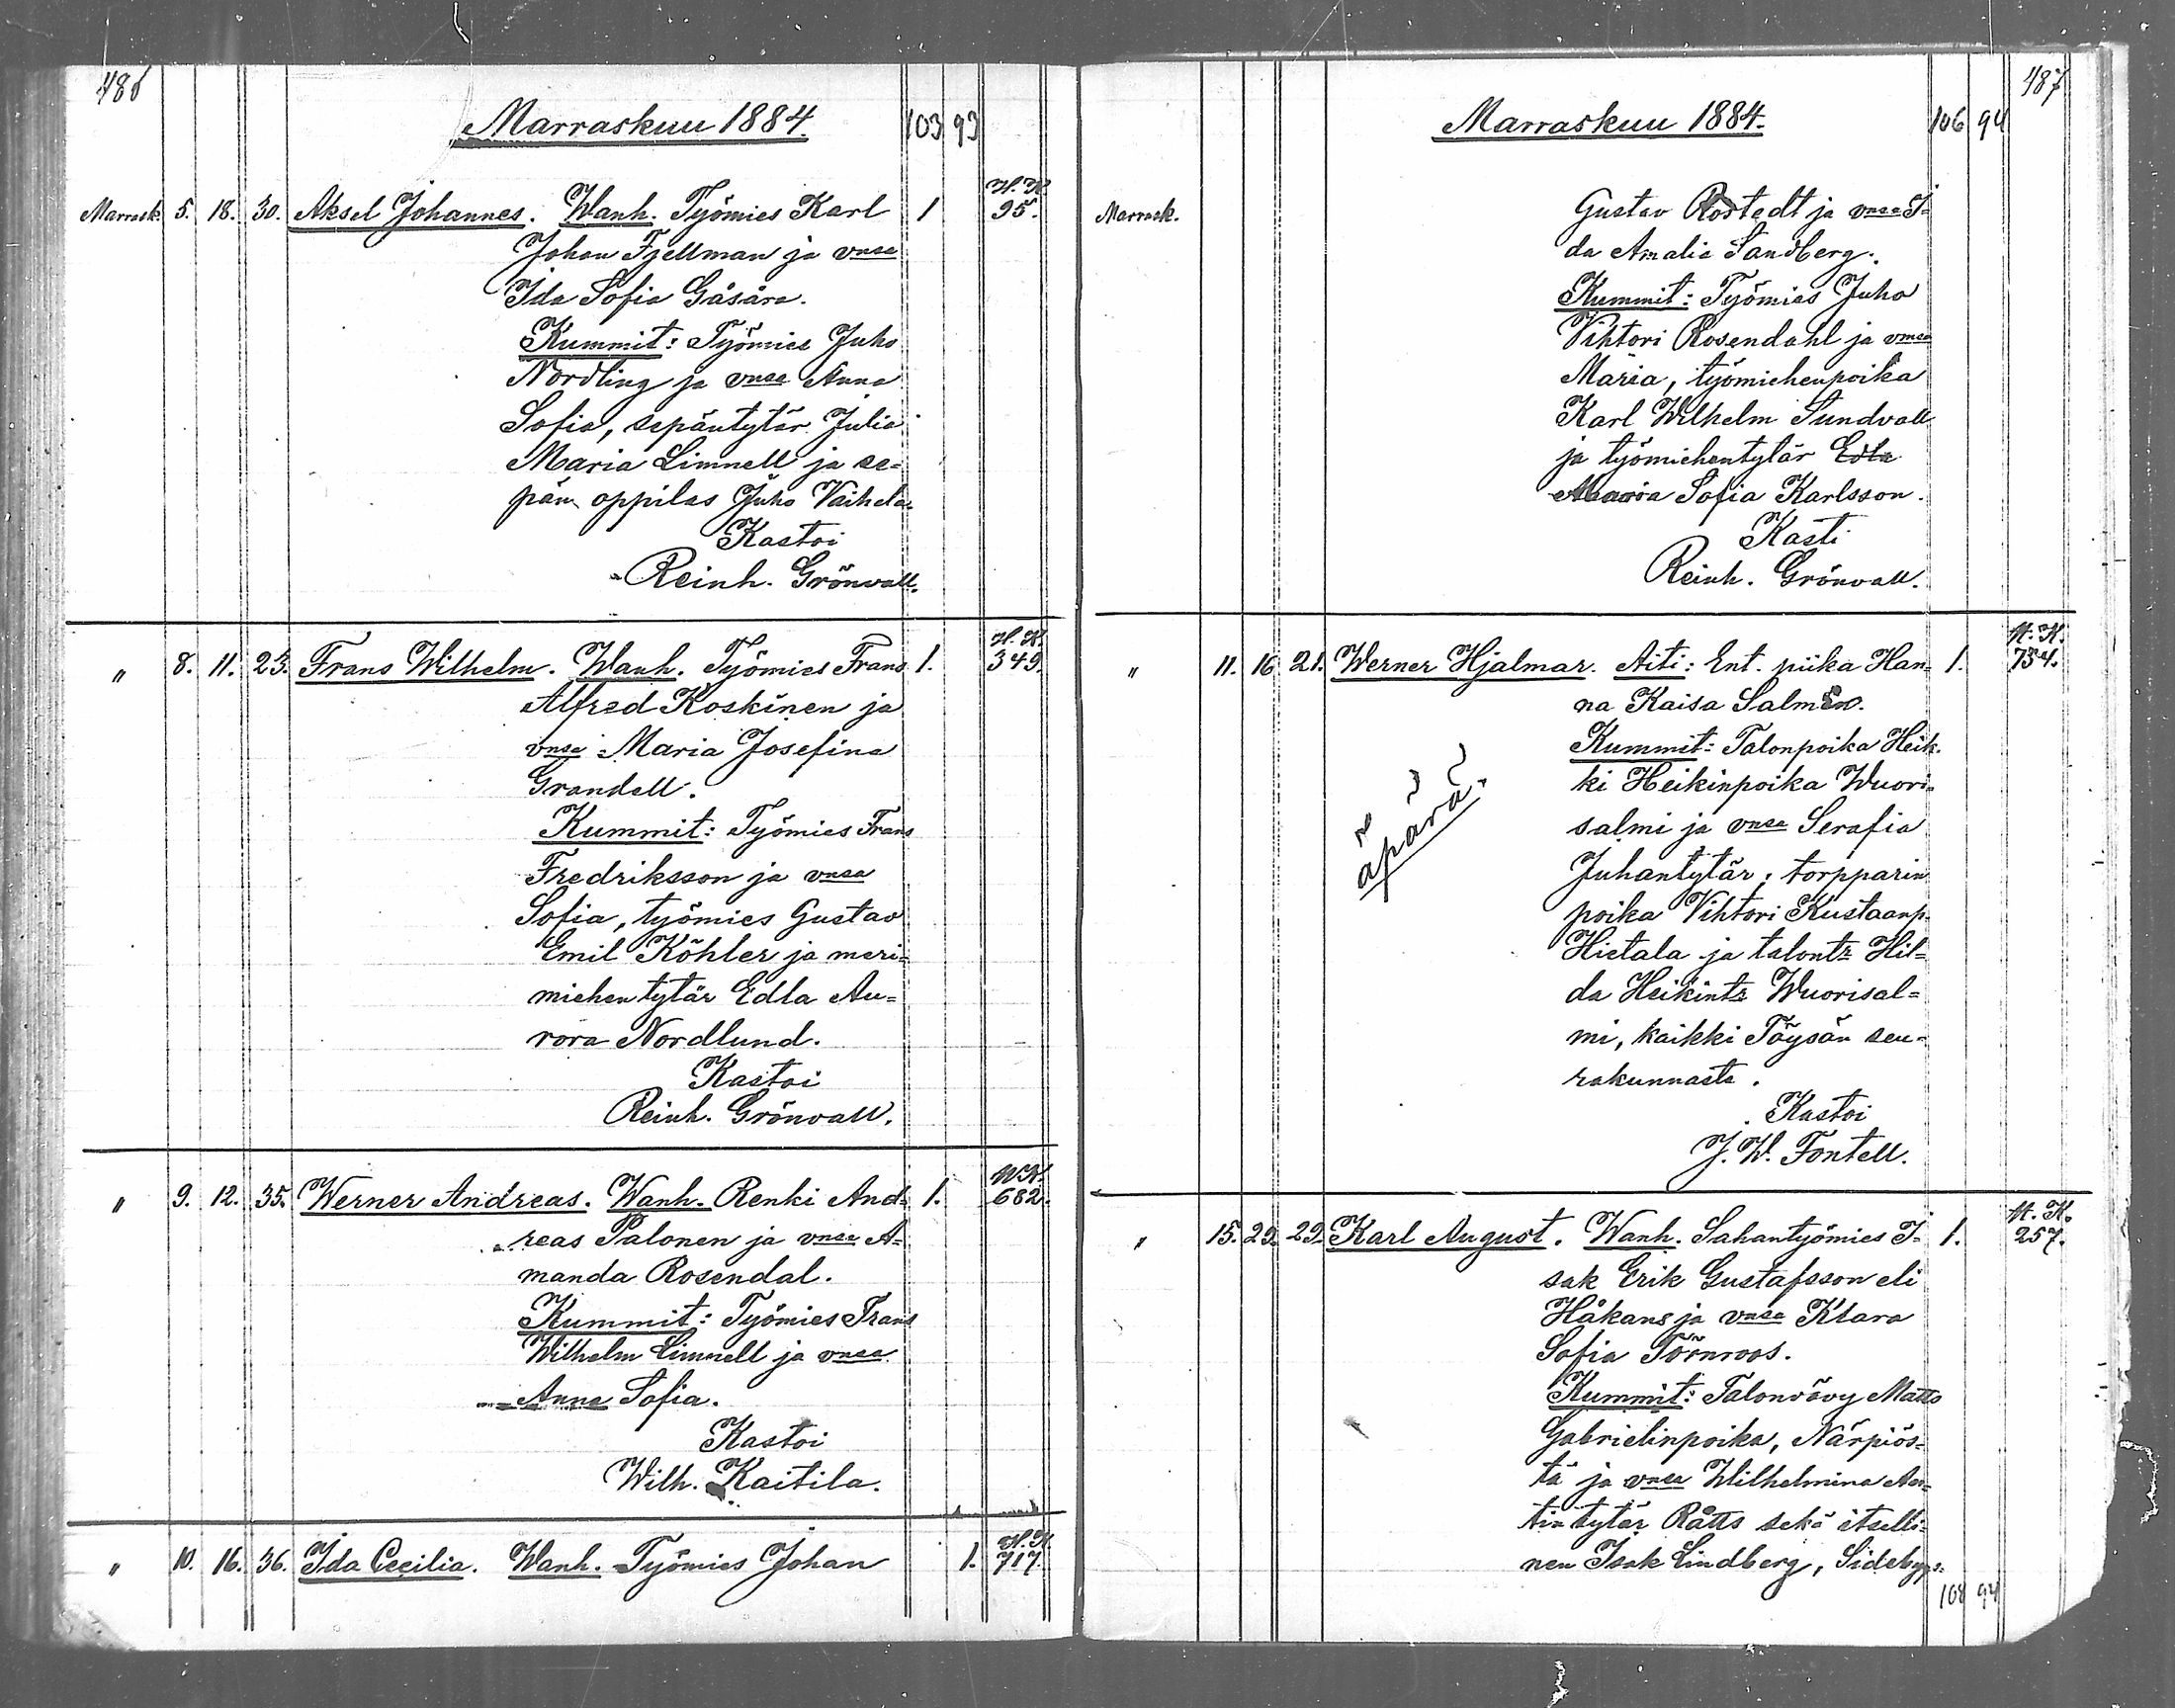 486
Marraskuu 1884.
103 93
Marrask. 5. 18. 30. Aksel Johannes. Wanh. Työmies Karl 1 H.K. 95.
Johan Fjellman ja vmsa
Ida Sofia Gåsåra.
Kummit: Työmies Juho
Nordling ja vmsa Anna
Sofia, sepäntytär Julia
Maria Limnell ja se-
pän oppilas Juho Vaihela.
Kastoi
Reinh. Grönvall.
" 8. 11. 23. Frans Wilhelm. Wanh. Työmies Frans 1. H.K. 349.
Alfred Koskinen ja
vmsa Maria Josefina
Grandell.
Kummit: Työmies Frans
Fredriksson ja vmsa
Sofia, työmies Gustav
Emil Köhler ja meri=
miehen tytär Edla Au=
rora Nordlund.
Kastoi
Reinh. Grönvall.
" 9. 12. 35. Werner Andreas. Wanh. Renki And= 1. 682.
reas Palonen ja vmsa A=
manda Rosendal.
Kummit: Työmies Frans
Wilhelm Limnell ja vmsa
Anna Sofia.
Kastoi
Wilh. Kaitila.
" 10. 16. 36. Ida Cecilia. Wanh. Työmies Johan 1. H.K. 717.
487
Marraskuu 1884.
106 94
Marrask. Gustav Rostedt ja vmsa I=
da Amalia Sandberg.
Kummit: Työmies Juho
Vihtori Rosendahl ja vmsa
Maria, työmiehenpoika
Karl Wilhelm Sundvall
ja työmiehentytär Edla
Maria Sofia Karlsson.
Kasti
Reinh. Grönvall.
" 11. 16 21. Werner Hjalmar. Äiti: Ent. piika Han= 1. H.K. 754.
na Kaisa Salmén.
Kummit: Talonpoika Heik-
ki Heikinpoika Wuori=
salmi ja vmsa Serafia
Juhantytär; torpparin
poika Vihtori Kustaanp.
Hietala ja talontr Hil=
da Heikintr Wuorisal=
mi, kaikki Töysän seu=
rakunnasta.
Kastoi
J. W. Fontell.
äpärä.
" 15. 29. 29. Karl August. Wanh. Sahantyömies I- 1. H.K. 257.
sak Erik Gustafsson eli
Håkans ja vmsa Klara
Sofia Törnroos.
Kummit: Talonvävy Matts
Gabrielinpoika, Närpiös=
tä ja vmsa Wilhelmina An=
tintytär Rätts sekä itselli=
nen Isak Lindberg, Sidebyys=
108 94